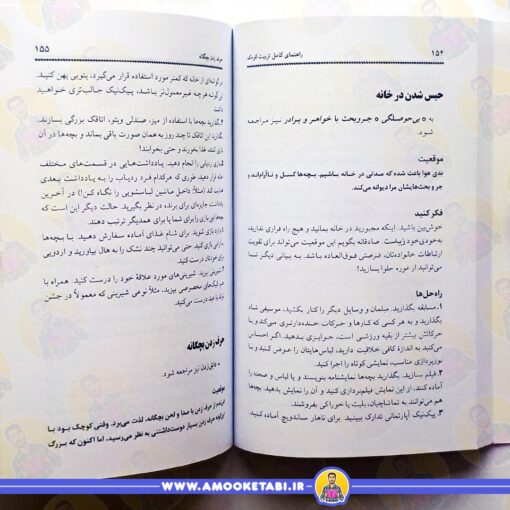 ۱۵۴
راهنمای کامل تربیت کودک
حبس شدن در خانه
به « بی‌حوصلگی » جر‌و‌بحث با خواهر و برادر نیز مراجعه
شود.
موقعیت
بدی هوا باعث شده که مدتی در خانه باشیم. بچه‌ها کسل و ناآرام‌اند و
جر و بحث‌هایشان مرا دیوانه می‌کند.
فکر کنید
خوش‌بین باشید. اینکه مجبورید در خانه بمانید و هیچ راه فراری ندارید،
به‌خودی‌خود زیباست. صادقانه بگویم این موقعیت می‌تواند برای تقویت
ارتباطات خانوادگیتان، فرصتی فوق‌العاده باشد. به بیانی دیگر شما
می‌توانید از غوره حلوا بسازید!
راه‌حل‌ها
۱. مسابقه بگذارید. مبلمان و وسایل دیگر را کنار بکشید، موسیقی شاد
بگذارید و به هر کسی که کارها و حرکات خنده‌دارتری می‌کند یا
حرکاتش بیشتر از بقیه ورزشی است، جوایزی بدهید. اگر احساس
می‌کنید به اندازهٔ کافی خلاقیت دارید، لباس‌هایتان را عوض کنید و با
نورپردازی مناسب، نمایشی کوتاه را اجرا کنید.
۲. فیلم بسازید. بگذارید بچه‌ها نمایشنامه بنویسند و یا لباس و صحنه را
آماده کنند. از این نمایش فیلم‌برداری کنید و آن را نمایش بدهید. بچه‌ها
هم می‌توانند به تماشاچیان، بلیت یا خوراکی بفروشند.
۳. پیک‌نیک آپارتمانی تدارک ببینید. برای ناهار ساندویچ آماده کنید.
حرف زدن بچگانه
۱۵۵
در گوشه‌ای از خانه که کمتر مورد استفاده قرار می‌گیرد، پتویی پهن کنید.
گوشه هرچه غیرمعمول‌تر باشد، پیک‌نیک جالب‌تری خواهید
۴. بگذارید بچه‌ها با استفاده از میز، صندلی و پتو، اتاقک بزرگی بسازند.
بگذارید این اتاقک تا چند روز به همان صورت باقی بماند و بچه‌ها در آن
بازی کنند، غذا بخورند و حتی بخوابند!
بازی ردیابی را انجام دهید. یادداشت‌هایی در قسمت‌های مختلف
خانه قرار دهید، طوری که هرکدام فرد ردیاب را به مکان بعدی
هدایت کند (مثلاً: داخل ماشین لباسشویی را نگاه کن!) در آخرین
یادداشت، جایزه‌ای برای برنده در نظر بگیرید. حالت دیگر این است که
بچه‌ها این بازی را برای شما یا برای همدیگر ترتیب دهند.
برای شام غذای آماده سفارش دهید. با بچه‌ها
بازی کنید. حتی می‌توانید چند تشک را به هال بیاورید و اردویی
برای خودتان درست کنید.
شیرینی بپزید. شیرینی‌های مورد علاقهٔ خود را درست کنید. همراه با
مخصوصی بپزید. مثلاً نوعی شیرینی که معمولاً در جشن
درست می‌کنید.
حرف زدن بچگانه
نیز مراجعه شود.
موقعیت
از حرف زدن با صدا و لحن بچگانه، لذت می‌برد. وقتی کوچک بود با
این‌گونه حرف زدن بسیار دوست‌داشتنی به نظر می‌رسید. اما اکنون که بزرگ
WWW.AMOOKETABI.IR